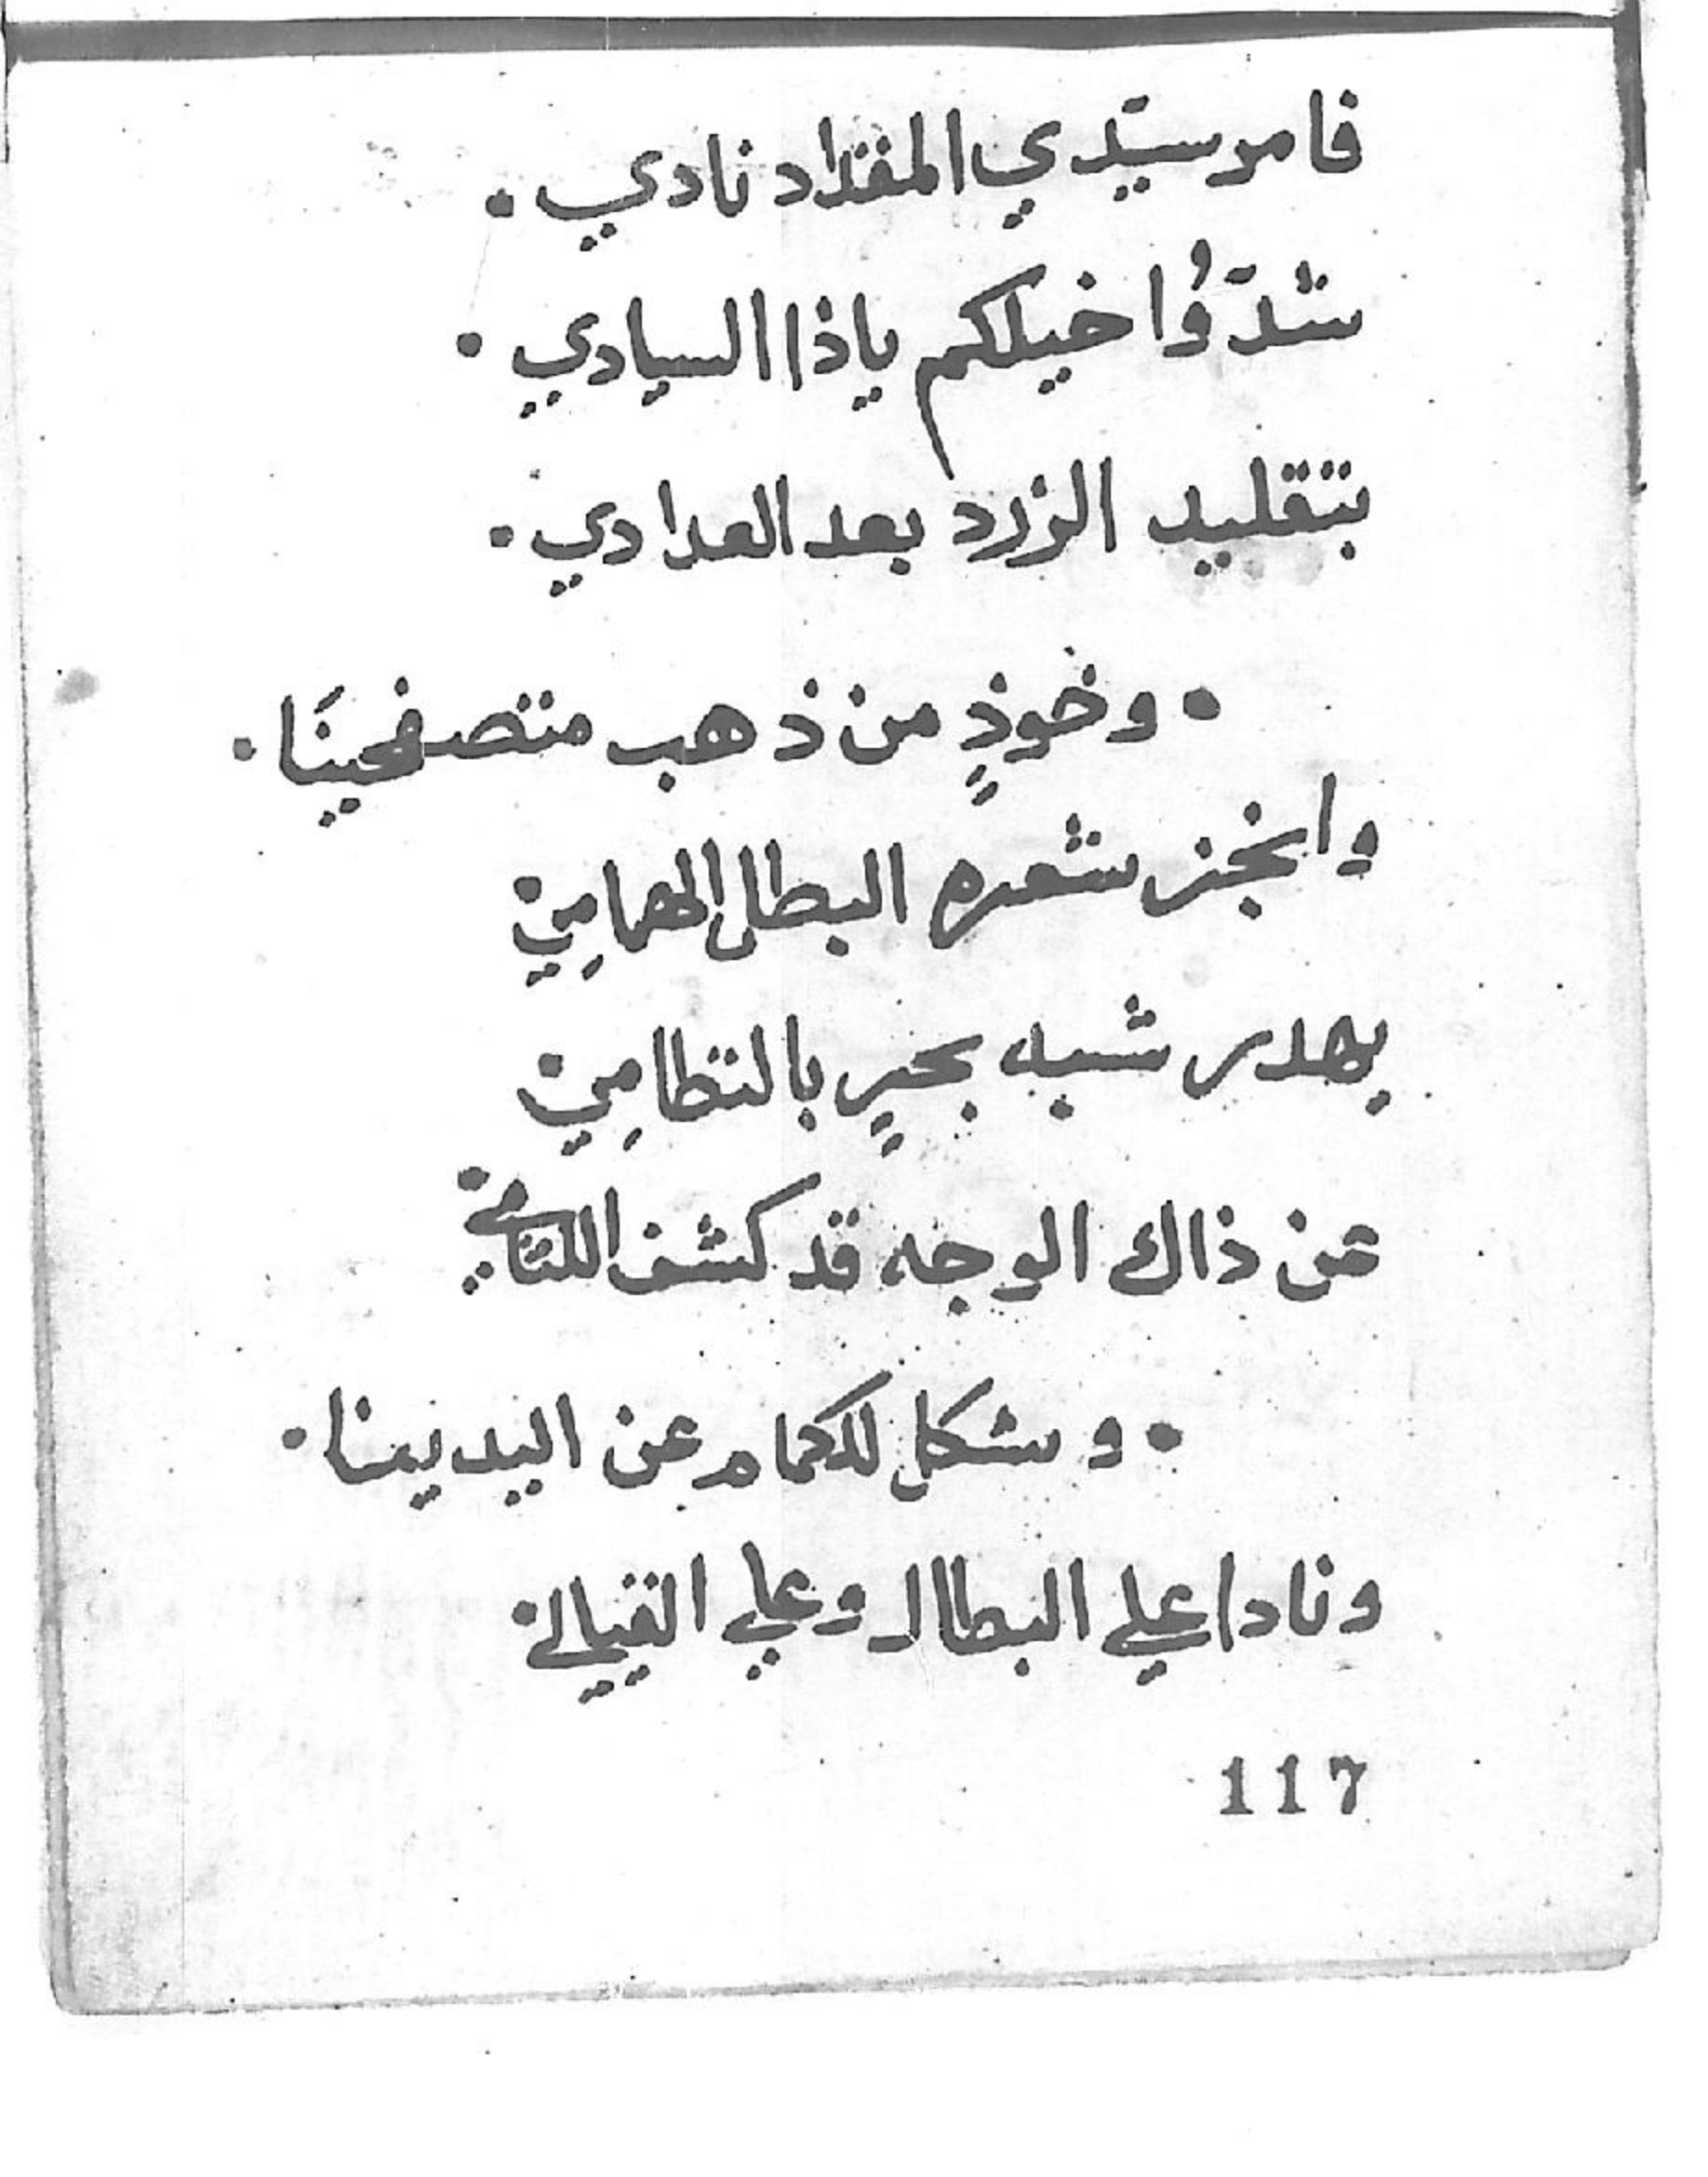 فامر سيّدي المقداد نادي .
شدّوُا خيلكم ياذا السيادي .
بتقليد الزرد بعد العدادي .
. وخوذٍ من ذهب متصفحينَا .
وانجز شعره البطال الهمامِي
يهدر شبه بحرٍ بالتطامِي
عن ذاك الوجه قد كشف اللثامي
. وشكل للكمام عن اليدينا .
ونادا علي البطال وعلي
117